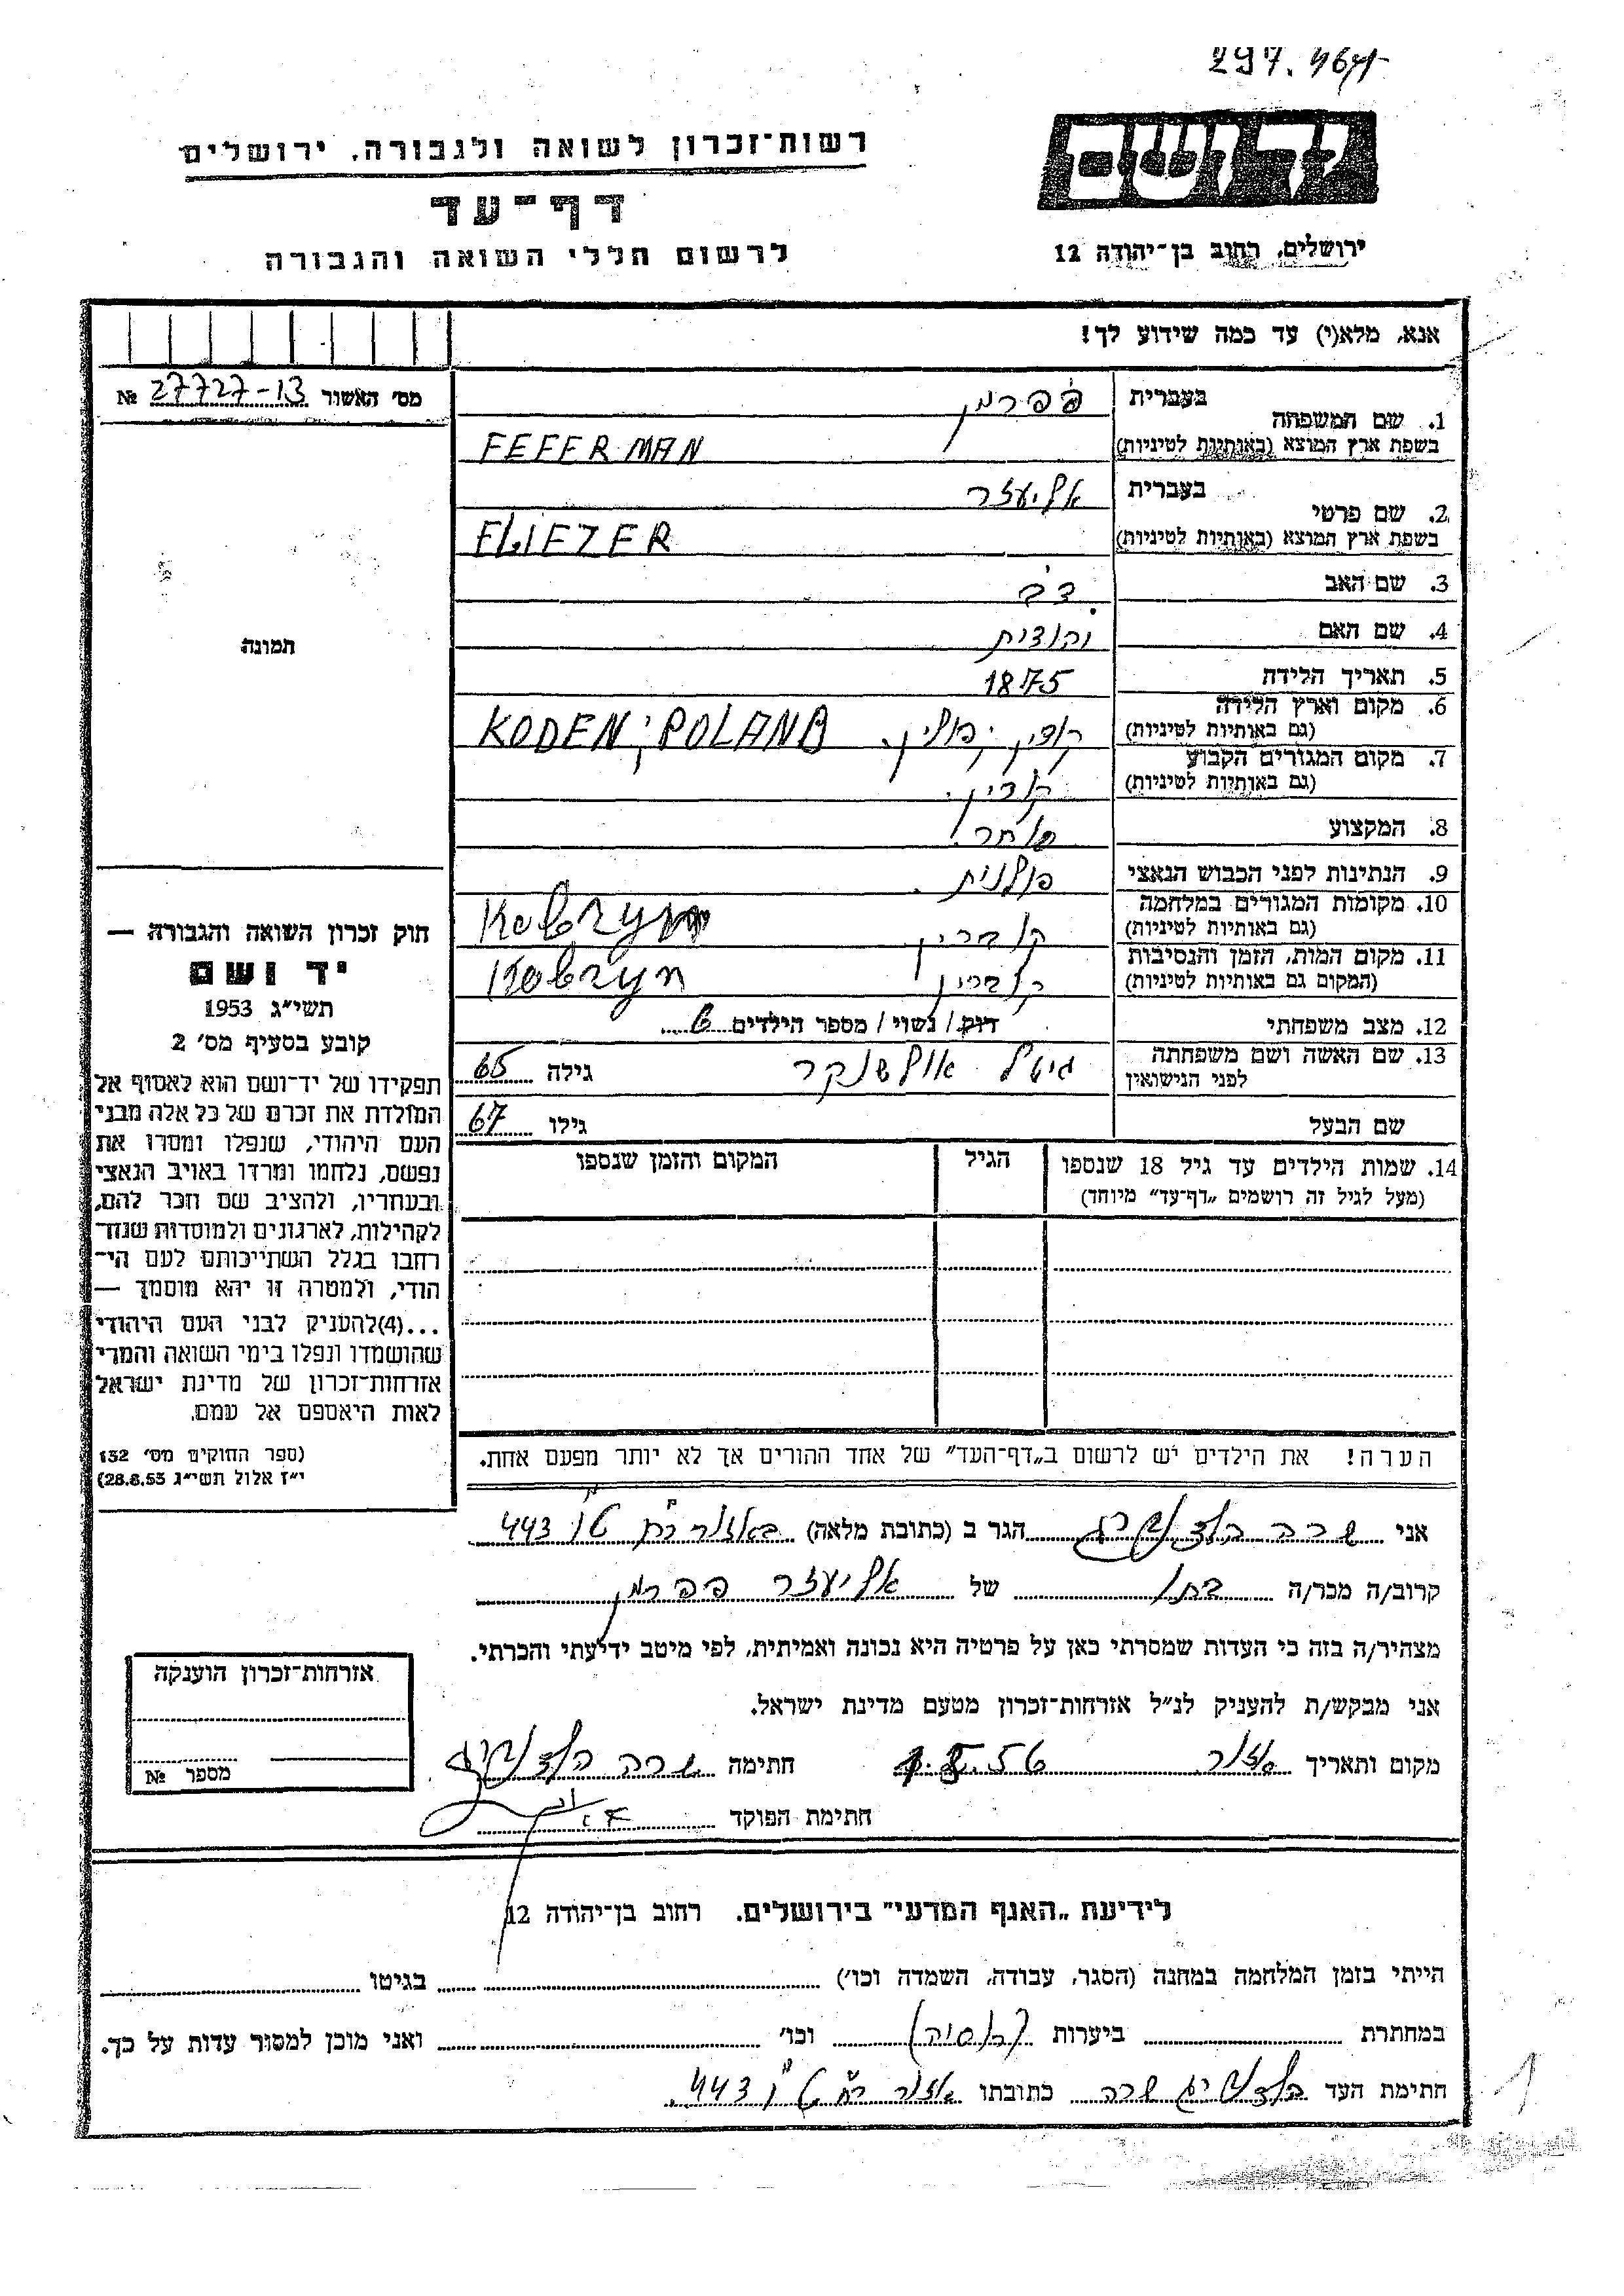 297.
יד ושם
רשות־זכרון לשואה ולגבורה, ירושלים
דף־עד
לרשום חללי השואה והגבורה
ירושלים, רחוב בן־יהודה 12
אנא, מלא(י) עד כמה שידוע לך!
מס׳ האשור 27727-13 №
1. שם המשפחה
בעברית פפרמן
בשפת ארץ המוצא (באותיות לטיניות) FEFERMAN
2. שם פרטי
בעברית אליעזר
בשפת ארץ המוצא (באותיות לטיניות) ELIEZER
3. שם האב
4. שם האם יהודית
5. תאריך הלידה 1875
6. מקום וארץ הלידה (גם באותיות לטיניות) קודין, פולין. KODEN, POLAND
7. מקום המגורים הקבוע (גם באותיות לטיניות) קודין.
8. המקצוע סוחר.
9. הנתינות לפני הכבוש הנאצי פולנית.
10. מקומות המגורים במלחמה (גם באותיות לטיניות) קוברין Kobryn
11. מקום המות, הזמן והנסיבות (המקום גם באותיות לטיניות) קוברין Kobryn
12. מצב משפחתי רוק / נשוי / מספר הילדים 6
13. שם האשה ושם משפחתה לפני הנישואין גיטל אולשנקר גילה 65
שם הבעל גילו 67
14. שמות הילדים עד גיל 18 שנספו (מעל לגיל זה רושמים „דף־עד״ מיוחד)
הגיל
המקום והזמן שנספו
תמונה
חוק זכרון השואה והגבורה —
יד ושם
תשי״ג 1953
קובע בסעיף מס׳ 2
תפקידו של יד־ושם הוא לאסוף אל
המולדת את זכרם של כל אלה מבני
העם היהודי, שנפלו ומסרו את
נפשם, נלחמו ומרדו באויב הנאצי
ובעוזריו, ולהציב שם וזכר להם,
לקהילות, לארגונים ולמוסדות שנח־
רבו בגלל השתייכותם לעם הי־
הודי, ולמטרה זו יהא מוסמך —
...(4) להעניק לבני העם היהודי
שהושמדו ונפלו בימי השואה והמרי
אזרחות־זכרון של מדינת ישראל
לאות היאספם אל עמם.
(ספר החוקים מס׳ 132
י״ז אלול תשי״ג 28.8.53)
הערה! את הילדים יש לרשום ב„דף־העד״ של אחד ההורים אך לא יותר מפעם אחת.
אני שרה הגר ב (כתובת מלאה) 443
קרוב/ה מכר/ה בתו של אליעזר פפרמן
מצהיר/ה בזה כי העדות שמסרתי כאן על פרטיה היא נכונה ואמיתית, לפי מיטב ידיעתי והכרתי.
אני מבקש/ת להעניק לנ״ל אזרחות־זכרון מטעם מדינת ישראל.
מקום ותאריך אזור חתימה שרה
חתימת הפוקד
אזרחות־זכרון הוענקה
מספר №
לידיעת „האגף המדעי״ בירושלים, רחוב בן־יהודה 12
הייתי בזמן המלחמה במחנה (הסגר, עבודה, השמדה וכו׳) בגיטו
במחתרת ביערות (רוסיה) וכו׳ ואני מוכן למסור עדות על כך.
חתימת העד שרה כתובתו אזור 443.